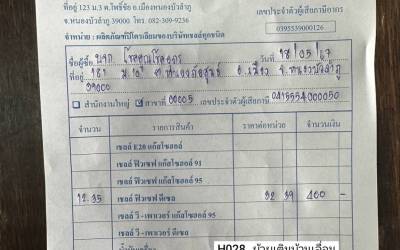 ที่อยู่ 123 ม.3 ต.โพธิ์ชัย อ.เมืองหนองบัวลำภู
จ.หนองบัวลำภู 39000 โทร. 082-309-9236
เลขประจำตัวผู้เสียภาษีอากร
0395539000126
จำหน่าย : ผลิตภัณฑ์ปิโตรเลียมของบริษัทเชลล์ทุกชนิด
ชื่อผู้ซื้อ บจก. วันที่ 18/05/67
ที่อยู่ 181 ม.
39000
สำนักงานใหญ่ สาขาที่ 00005 เลขประจำตัวผู้เสียภาษี 0415554000050
จำนวน รายการสินค้า ราคาต่อหน่วย จำนวนเงิน
เชลล์ E20 แก๊สโซฮอล์
เชลล์ ฟิวเซฟ แก๊สโซฮอล์ 91
เชลล์ ฟิวเซฟ แก๊สโซฮอล์ 95
12.35 เชลล์ ฟิวเซฟ ดีเซล 32 39 400 -
เชลล์ วี - เพาเวอร์ แก๊สโซฮอล์ 95
เชลล์ วี - เพาเวอร์ ดีเซล
H028